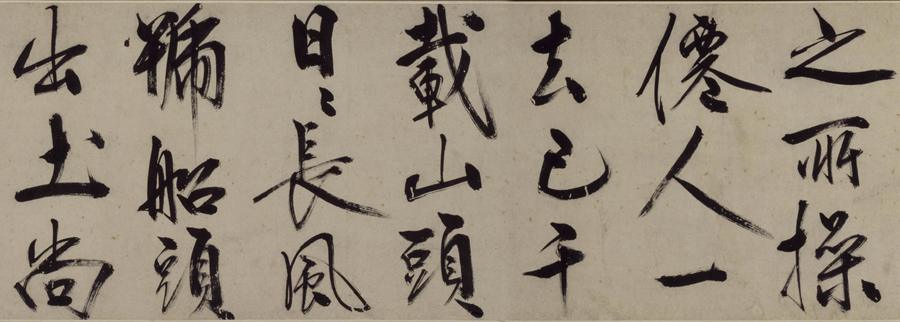 之所操
僊人一
去已千
載山頭
日〻長風
號船頭
出土尚